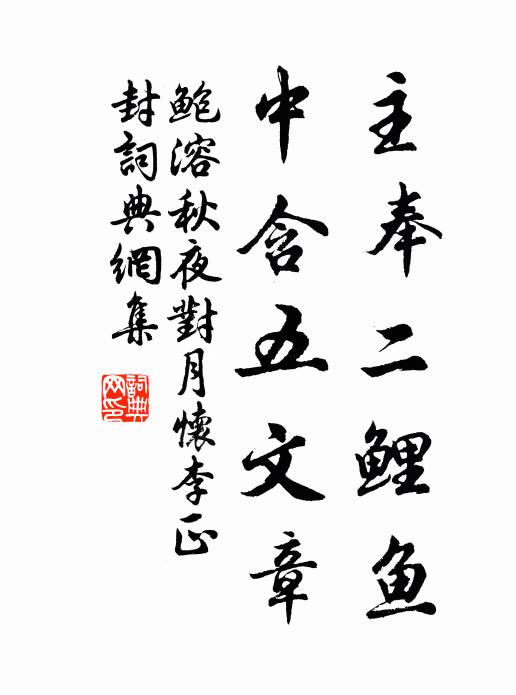 主奉二鲤鱼
中含五文章
鲍溶秋夜對月懷李正
封詞典網集
詞典
网印